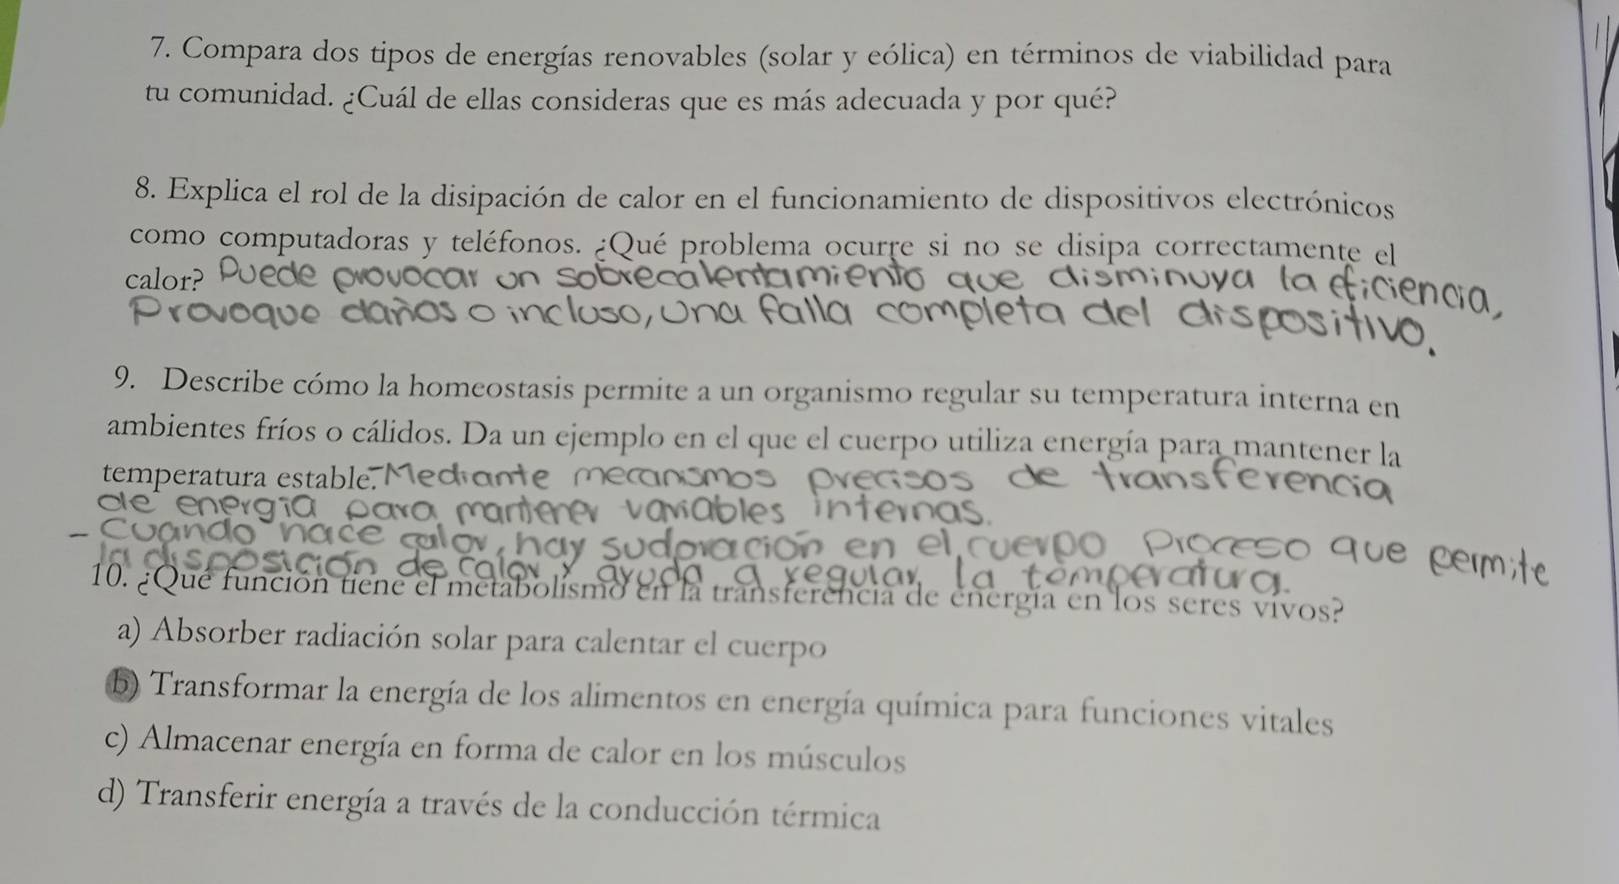 7. Compara dos tipos de energías renovables (solar y eólica) en términos de viabilidad para
tu comunidad. ¿Cuál de ellas consideras que es más adecuada y por qué?
8. Explica el rol de la disipación de calor en el funcionamiento de dispositivos electrónicos
como computadoras y teléfonos. ¿Qué problema ocurre si no se disipa correctamente el
calor? Puede provocar un sobrecalentamiento que disminuya la eficiencia,
Provoque daños o incluso, una falla completa del dispositivo.
9. Describe cómo la homeostasis permite a un organismo regular su temperatura interna en
ambientes fríos o cálidos. Da un ejemplo en el que el cuerpo utiliza energía para mantener la
temperatura estable. -Mediante mecanismos precisos de transferencia
de energia para mantener variables internas.
- Cuando hace calor, hay sudoracion en el cuerpo Proceso que permite
la disposición de calor y ayuda a regular la temperatura.
10. ¿Qué función tiene el metabolismo en la transferencia de energía en los seres vivos?
a) Absorber radiación solar para calentar el cuerpo
b) Transformar la energía de los alimentos en energía química para funciones vitales
c) Almacenar energía en forma de calor en los músculos
d) Transferir energía a través de la conducción térmica